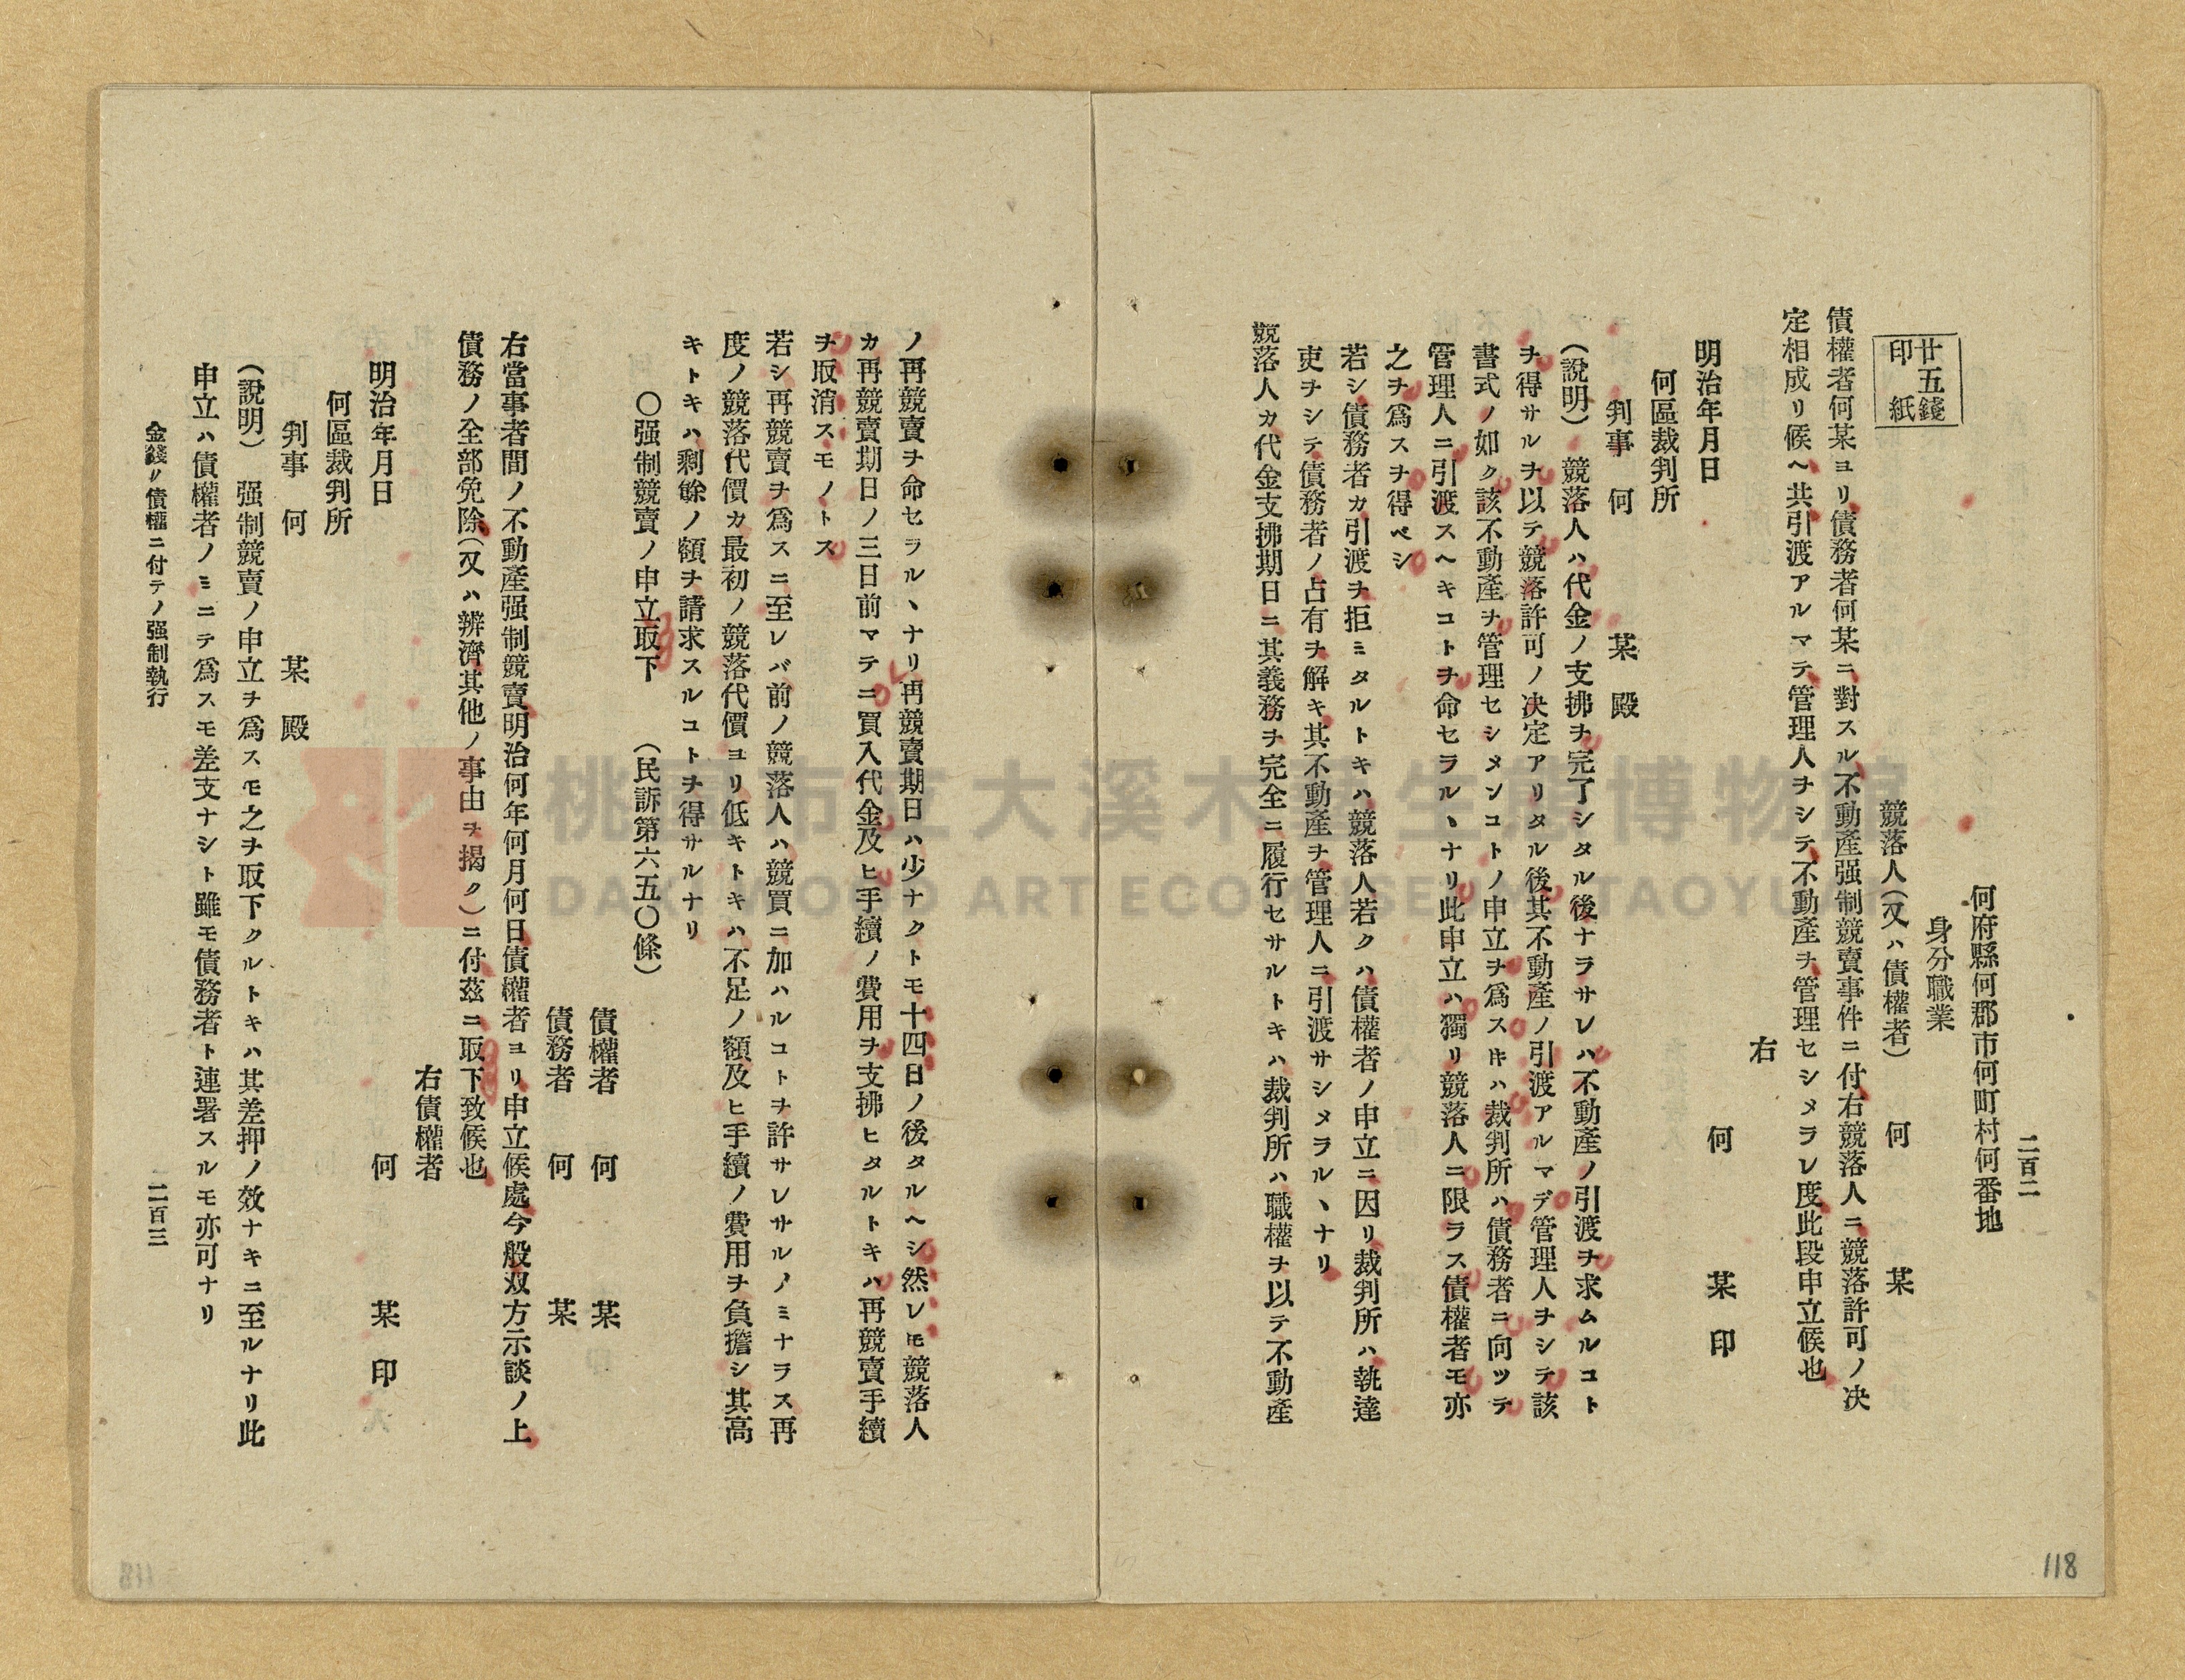 二百二
何府縣何郡市何町村何番地
身分職業
競落人(又ハ債權者) 何 某
廿五錢
印紙
債權者何某ヨリ債務者何某ニ對スル不動產强制競賣事件ニ付右競落人ニ競落許可ノ決
定相成リ候ヘ共引渡アルマテ管理人ヲシテ不動產ヲ管理セシメラレ度此段申立候也
右
何 某 印
明治年月日
何區裁判所
判事 何 某 殿
(說明) 競落人ハ代金ノ支拂ヲ完了シタル後ナラサレハ不動產ノ引渡ヲ求ムルコト
ヲ得サルヲ以テ競落許可ノ決定アリタル後其不動產ノ引渡アルマデ管理人ヲシテ該
書式ノ如ク該不動產ヲ管理セシメンコトノ申立ヲ爲スキハ裁判所ハ債務者ニ向ッテ
管理人ニ引渡スヘキコトヲ命セラルヽナリ此申立ハ獨リ競落人ニ限ラス債權者モ亦
之ヲ爲スヲ得ベシ
若シ債務者カ引渡ヲ拒ミタルトキハ競落人若クハ債權者ノ申立ニ因リ裁判所ハ執達
吏ヲシテ債務者ノ占有ヲ解キ其不動產ヲ管理人ニ引渡サシメラルヽナリ
競落人カ代金支拂期日ニ其義務ヲ完全ニ履行セサルトキハ裁判所ハ職權ヲ以テ不動產
118
ノ再競賣ヲ命セラルヽナリ再競賣期日ハ少ナクトモ十四日ノ後タルヘシ然レモ競落人
カ再競賣期日ノ三日前マテニ買入代金及ヒ手續ノ費用ヲ支拂ヒタルトキハ再競賣手續
ヲ取消スモノトス
若シ再競賣ヲ爲スニ至レバ前ノ競落人ハ競買ニ加ハルコトヲ許サレサルノミナラス再
度ノ競落代價カ最初ノ競落代價ヨリ低キトキハ不足ノ額及ヒ手續ノ費用ヲ負擔シ其高
キトキハ剩餘ノ額ヲ請求スルコトヲ得サルナリ
〇强制競賣ノ申立取下 (民訴第六五〇條)
債權者 何 某
債務者 何 某
右當事者間ノ不動產强制競賣明治何年何月何日債權者ヨリ申立候處今般双方示談ノ上
債務ノ全部免除(又ハ辨濟其他ノ事由ヲ揭ク)ニ付茲ニ取下致候也
右債權者
何 某 印
明治年月日
何區裁判所
判事 何 某 殿
(說明) 强制競賣ノ申立ヲ爲スモ之ヲ取下クルトキハ其差押ノ效ナキニ至ルナリ此
申立ハ債權者ノミニテ爲スモ差支ナシト雖モ債務者ト連署スルモ亦可ナリ
金錢ノ債權ニ付テノ强制執行 二百三
桃園市立大溪木藝生態博物館
DAXI WOOD ART ECOMUSEUM, TAOYUAN